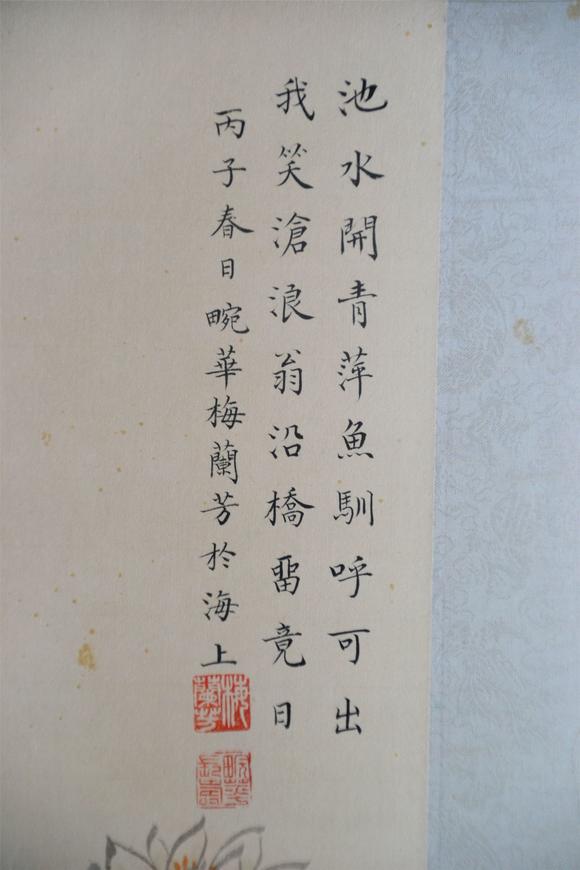 池水開青萍魚馴呼可出
我笑滄浪翁沿橋畱竟日
丙子春日畹華梅蘭芳於海上
梅蘭芳